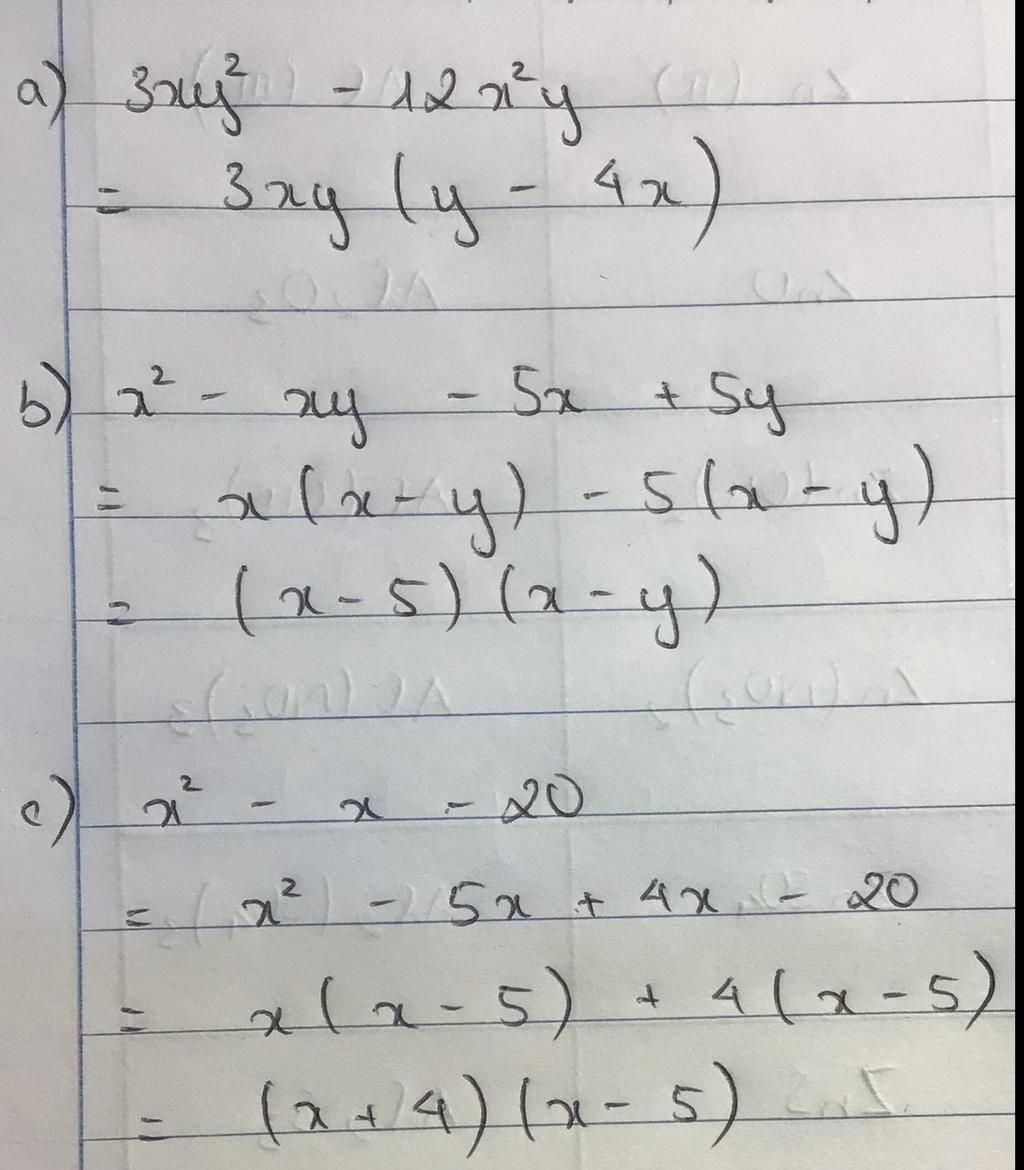 a) 3xy² - 12x²y
= 3xy (y - 4x)
b) x² - xy - 5x + 5y
= x (x - y) - 5 (x - y)
= (x - 5) (x - y)
c) x² - x - 20
= x² - 5x + 4x - 20
= x (x - 5) + 4 (x - 5)
= (x + 4) (x - 5)